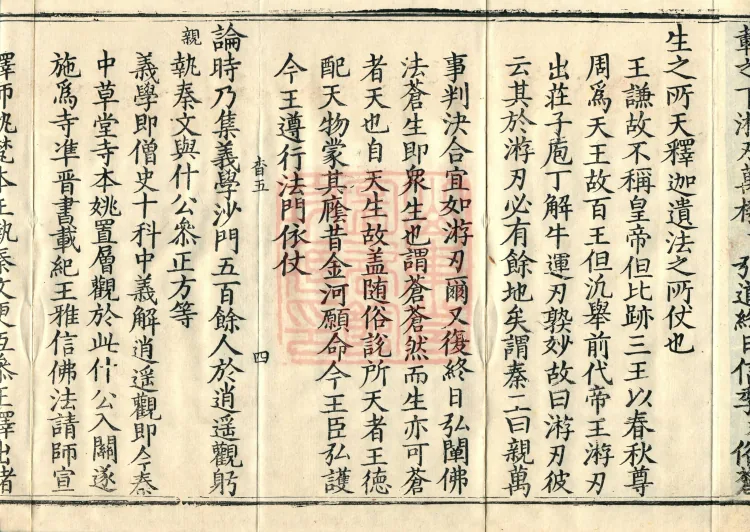 載之下游刃萬機　弘道終日信季俗蒼
生之所天釋迦遺法之所仗也
王謙故不稱皇帝但比跡三王以春秋尊
周爲天王故百王但汎舉前代帝王游刃
出莊子庖丁解牛運刃熟妙故曰游刃彼
云其於游刃必有餘地矣謂秦二曰親萬
事判決合宜如游刃爾又復終日弘闡佛
法蒼生即衆生也謂蒼蒼然而生亦可蒼
者天也自天生故盖随俗說所天者王德
配天物蒙其廕昔金河願命今王臣弘護
今王遵行法門依仗
杳五　四
論時乃集義學沙門五百餘人於逍遥觀躬
親執秦文與什公叅正方等
義學即僧史十科中義解逍遥觀即今秦
中草堂寺本姚置層觀於此什公入關遂
施爲寺準晋書載紀王雅信佛法請師宣
譯師執梵本王執秦文更互叅正譯出諸